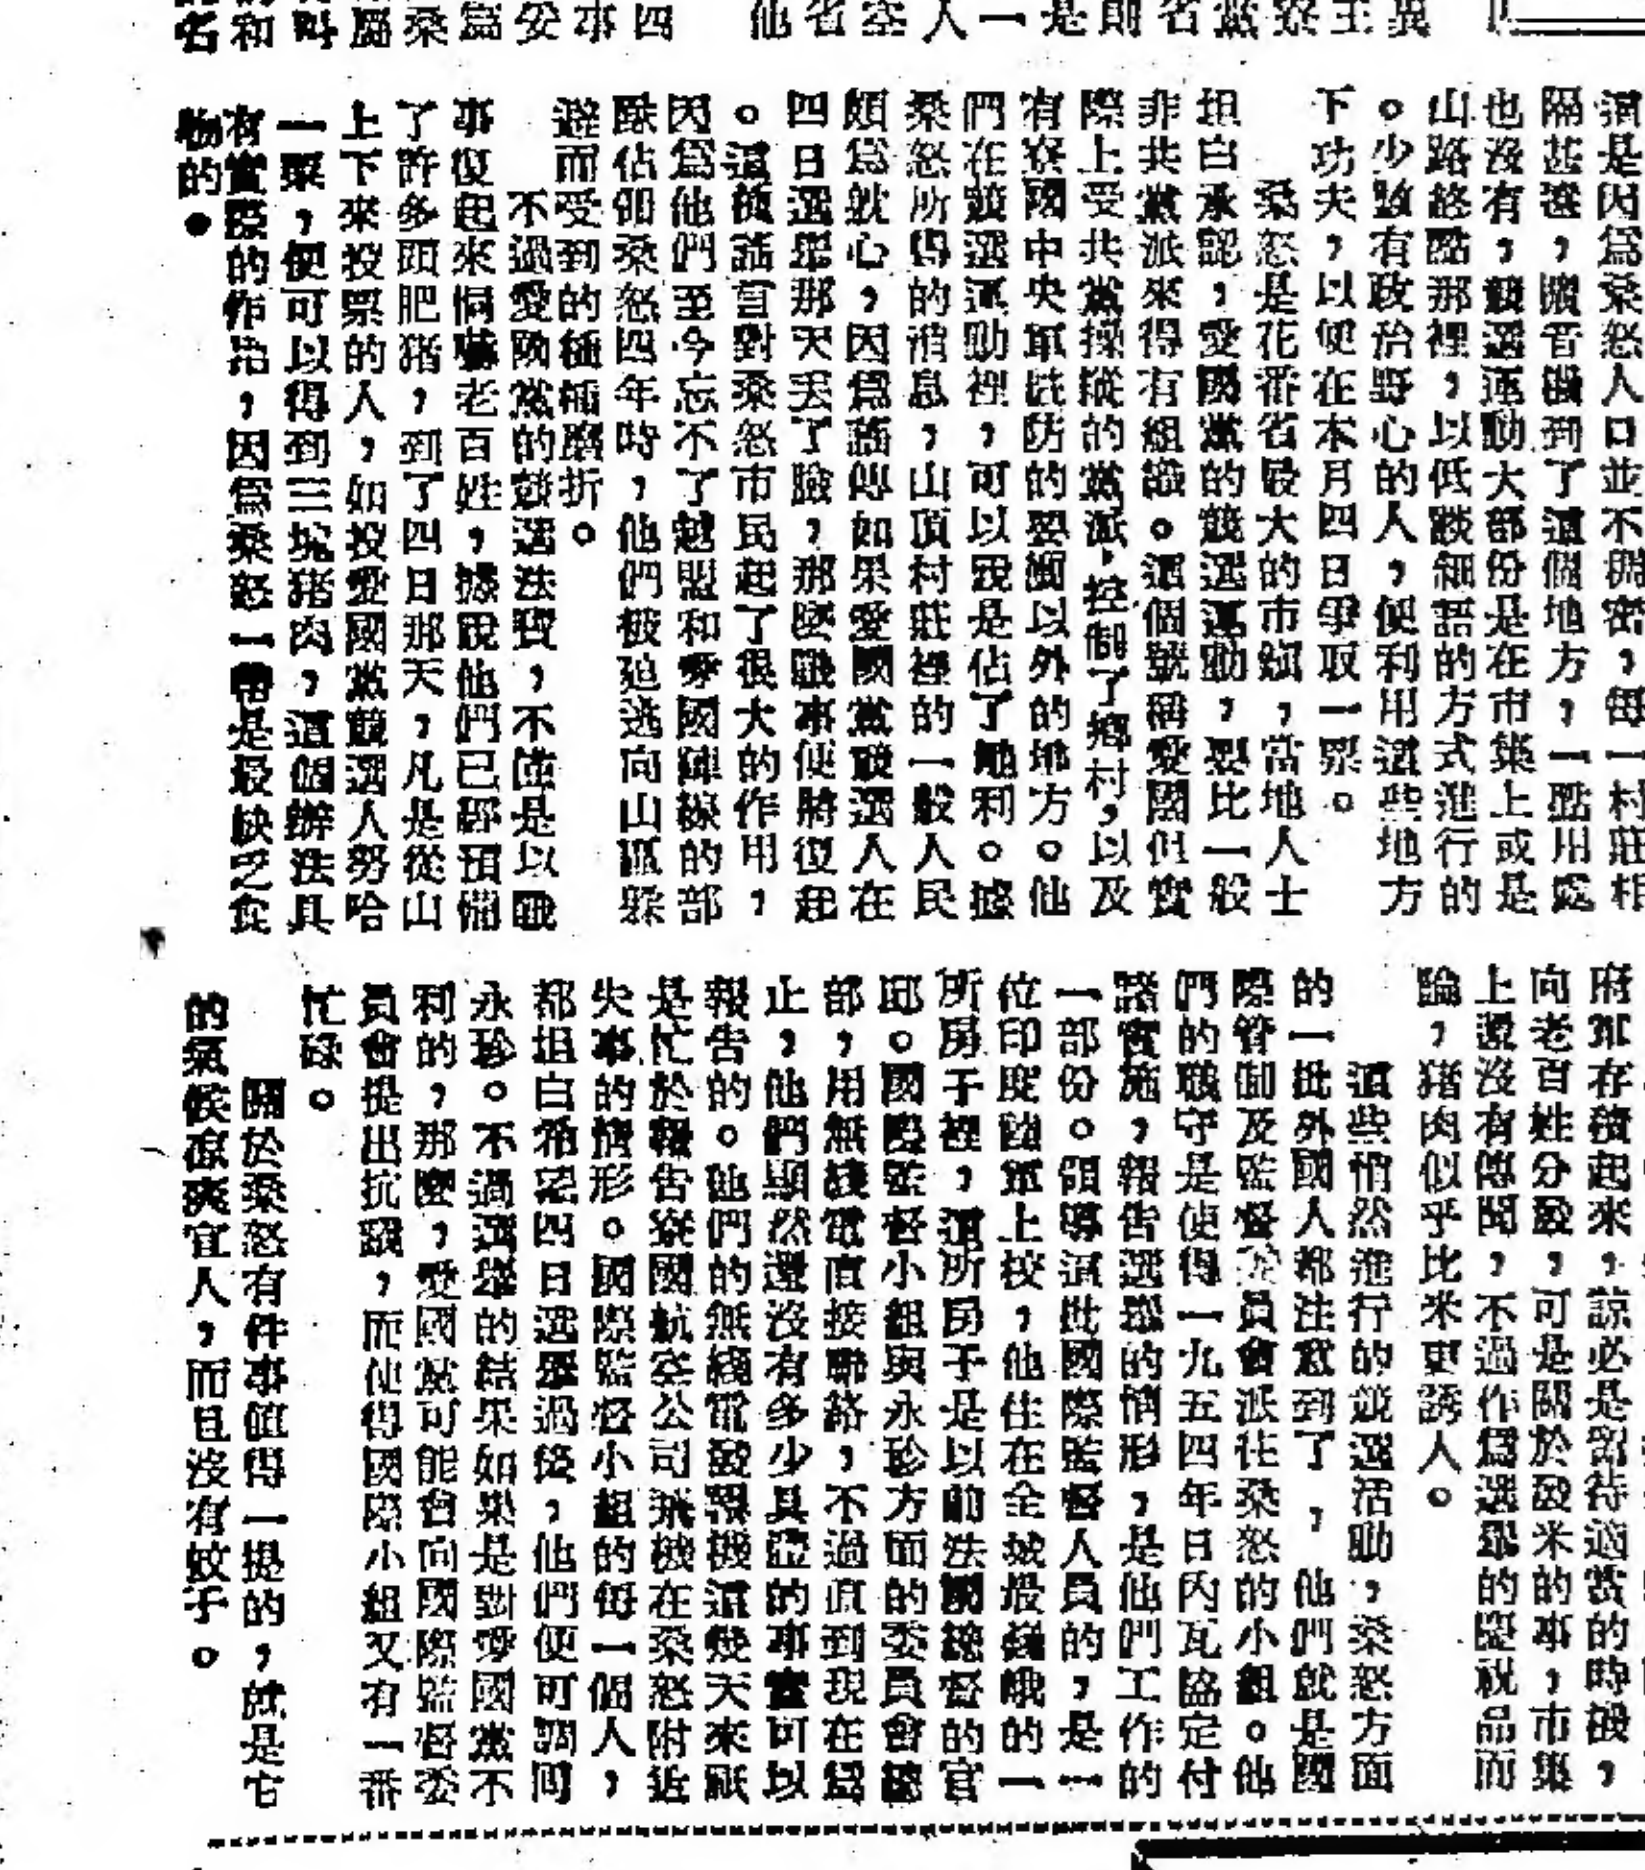 這是因爲桑怒人口並不稠密，每一村莊相
隔甚遠，購音機到了這個地方，一點用處
也沒有，競選運動大部份是在市集上或是
山路終點那裡，以低談細語的方式進行的
。少數有政治野心的人，便利用這些地方
下功夫，以便在本月四日爭取一票。
桑怒是花番省最大的市鎭，當地人士
坦白承認，愛國黨的競選運動，要比一般
非共黨派來得有組織。這個號稱愛國但實
際上受共黨操縱的黨派，控制了鄉村，以及
有寮國中央軍駐防的要鎭以外的地方。他
們在競選運動裡，可以說是佔了地利。據
桑怒所得的消息，山頂村莊裡的一般人民
頗爲躭心，因爲謠傳如果愛國黨競選人在
四日選舉那天丟了臉，那麼戰事便將復起
。這種謠言對桑怒市民起了很大的作用，
因爲他們至今忘不了越盟和寮國陣線的部
隊佔領桑怒四年時，他們被廹逃向山區躱
避而受到的種種磨折。
不過愛國黨的競選法寶，不僅是以戰
事復起來恫嚇老百姓，據說他們已經預備
了許多頭肥猪，到了四日那天，凡是從山
上下來投票的人，如投愛國黨競選人努哈
一票，便可以得到三塊猪肉，這個辦法具
有實際的作用，因爲桑怒一帶是最缺乏食
物的。
府軍存積起來，諒必是留待適當的時機，
向老百姓分發，可是關於發米的事，市集
上還沒有傳聞，不過作爲選舉的慶祝品而
論，猪肉似乎比米更誘人。
這些悄然進行的競選活動，桑怒方面
的一批外國人都注意到了，他們就是國
際管制及監督委員會派往桑怒的小組。他
們的職守是使得一九五四年日內瓦協定付
諸實施，報告選舉的情形，是他們工作的
一部份。領導這批國際監督人員的，是一
位印度陸軍上校，他住在全城最巍峨的一
所房子裡，這所房子是以前法國總督的官
邸。國際監督小組與永珍方面的委員會總
部，用無綫電直接聯絡，不過直到現在爲
止，他們顯然還沒有多少具體的事實可以
報告的。他們的無綫電發報機這幾天來祇
是忙於報告寮國航空公司飛機在桑怒附近
失事的情形。國際監督小組的每一個人，
都坦白希望四日選舉過後，他們便可調回
永珍。不過選舉的結果如果是對愛國黨不
利的，那麼，愛國黨可能會向國際監督委
員會提出抗議，而使得國際小組又有一番
忙碌。
關於桑怒有件事值得一提的，就是它
的氣候凉爽宜人，而且沒有蚊子。